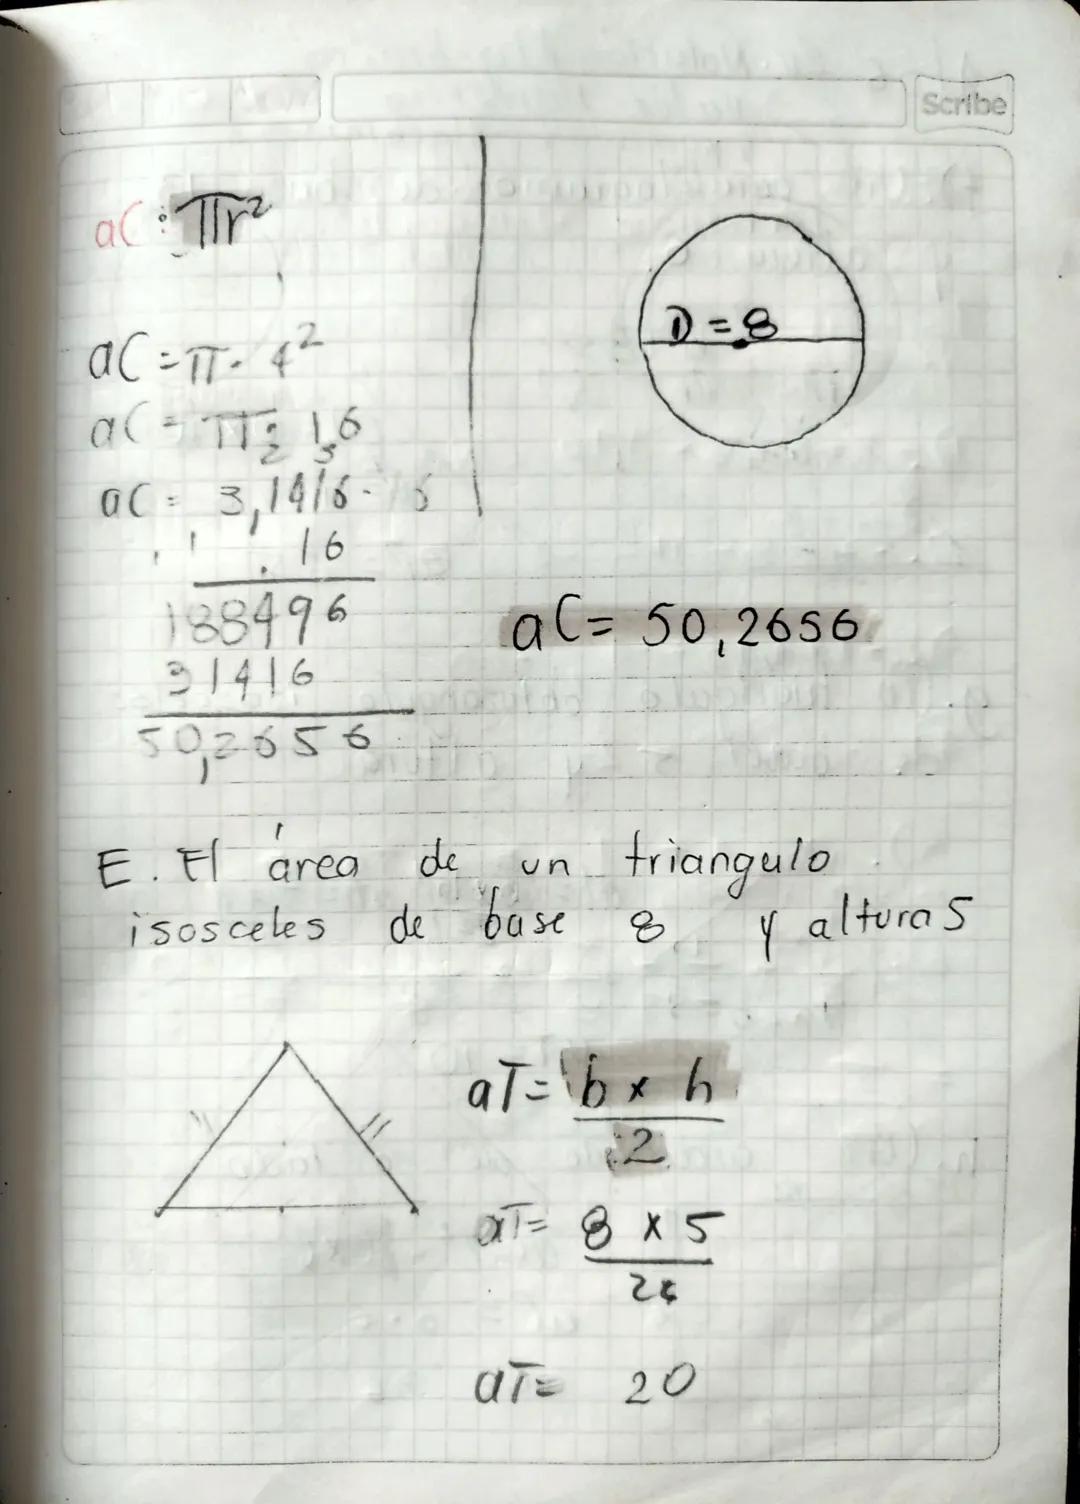 Scribe
aC: πr²
D = 8
aC = π · 4²
aC = π · 16
2 3
aC = 3,1416 · 16
. 16
188496
31416
50,2656
aC = 50,2656
E. El área de un triangulo
isosceles de base 8 y altura 5
aT = b x h
2
aT = 8 x 5
2
aT = 20